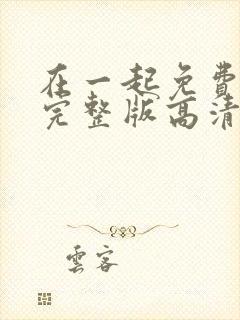 在一起免費
完整版高清
雲客